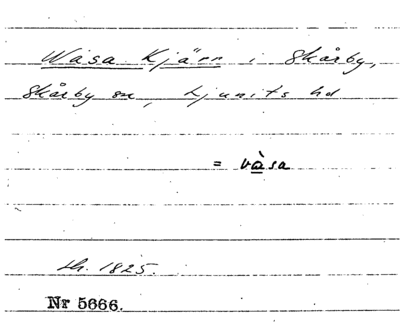 Wasa Kjärr i Skårby,
Skårby sn, Ljunits hd
= vàsa
Lh. 1825.
Nr 5666.